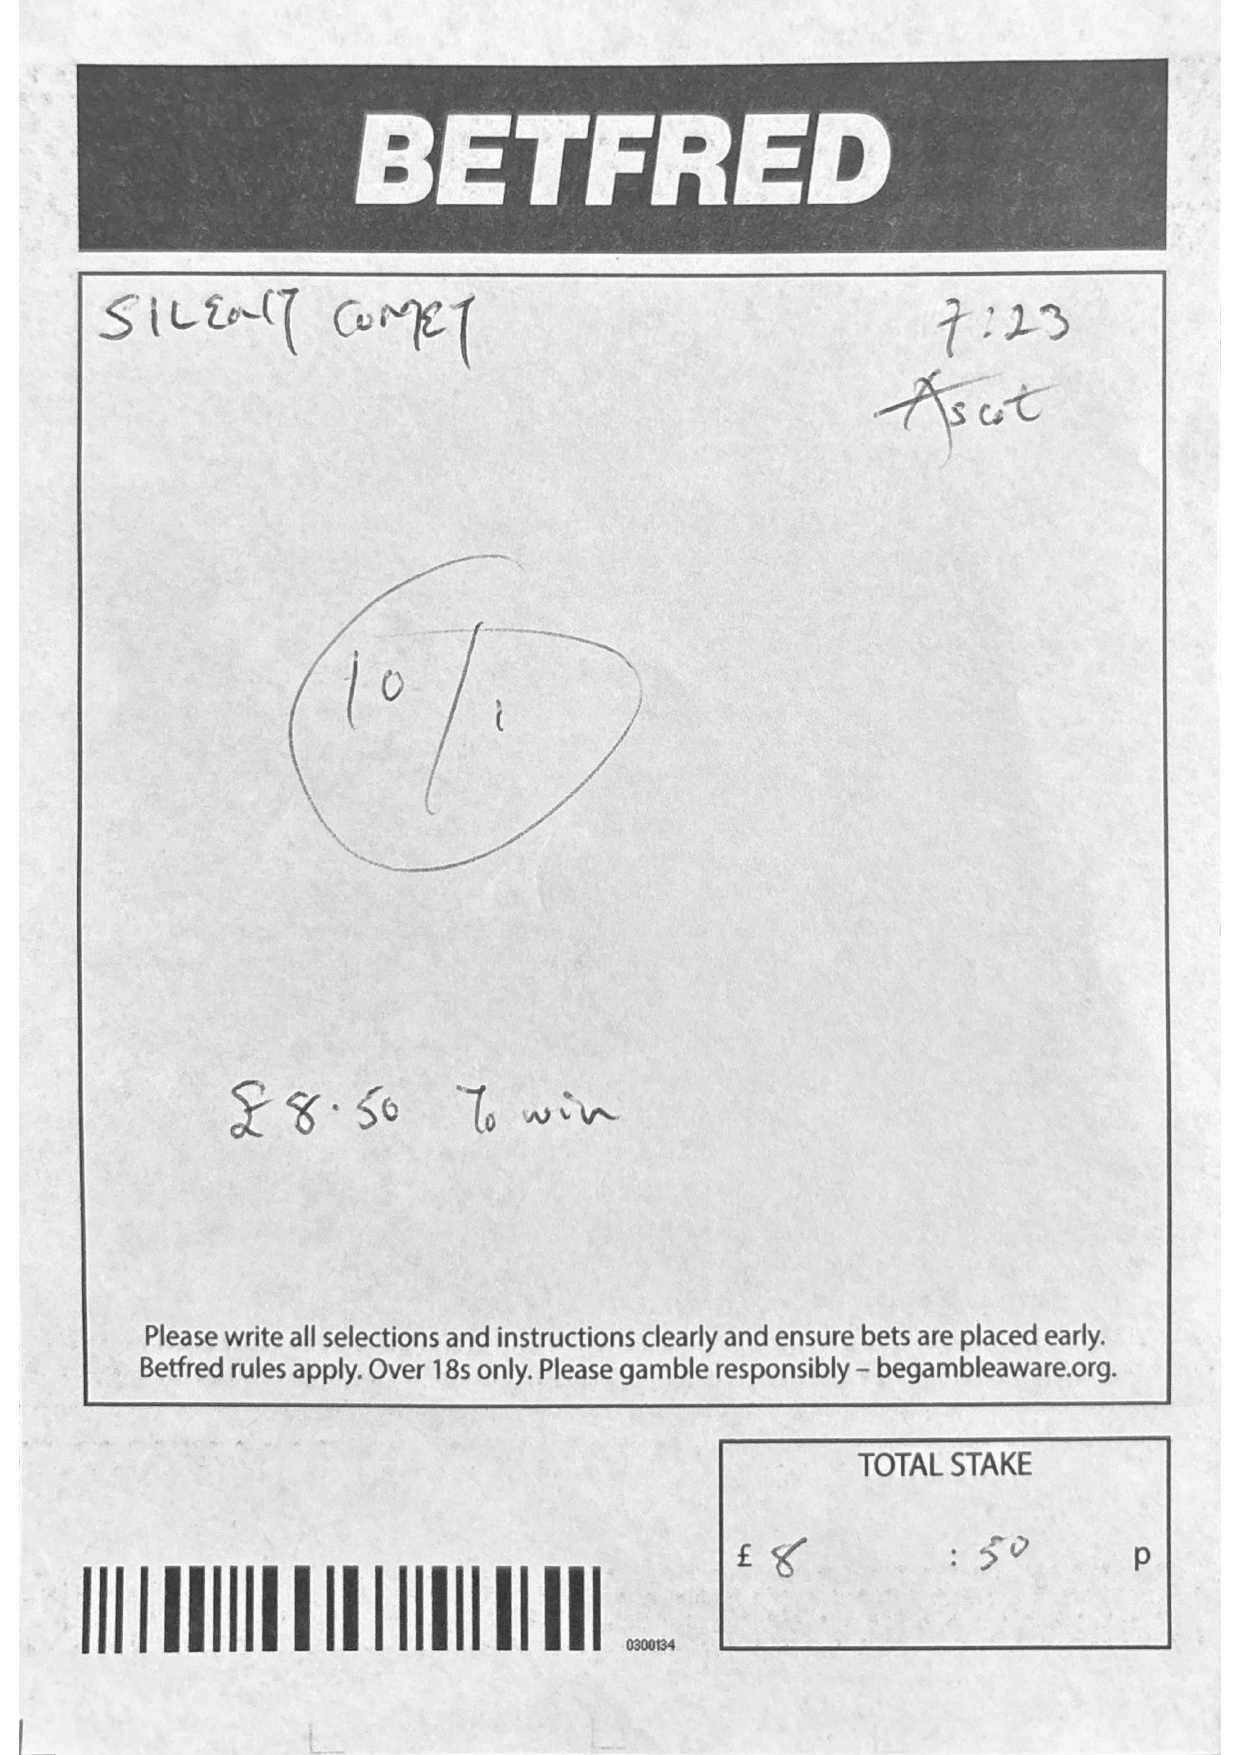 BETFRED
SILENT COMET 7:23
Ascot
10/1
£8.50 To win
Please write all selections and instructions clearly and ensure bets are placed early.
Betfred rules apply. Over 18s only. Please gamble responsibly – begambleaware.org.
TOTAL STAKE
£ 8 : 50 p
0300134